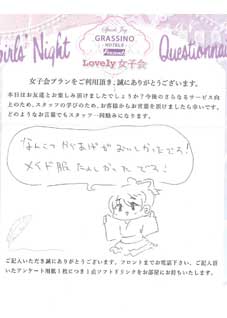 Special Joy
GRASSINO
HOTELS
Girls' Night Questionnai
Lovely 女子会
女子会プランをご利用頂き、誠にありがとうございます。
本日はお友達とお楽しみ頂けましたでしょうか?今後のさらなるサービス向
上のため、スタッフの学びのため、お客様からお言葉を頂けましたら幸いです。
どのようなお言葉でもスタッフ一同励みになります。
なんこつからあげがおいしかったでる!
メイド服 たのしかった でる!
ご記入いただき誠にありがとうございます。フロントまでお電話下さい、ご記入頂
いたアンケート用紙1枚につき1点ソフトドリンクをお部屋にお持ちいたします。